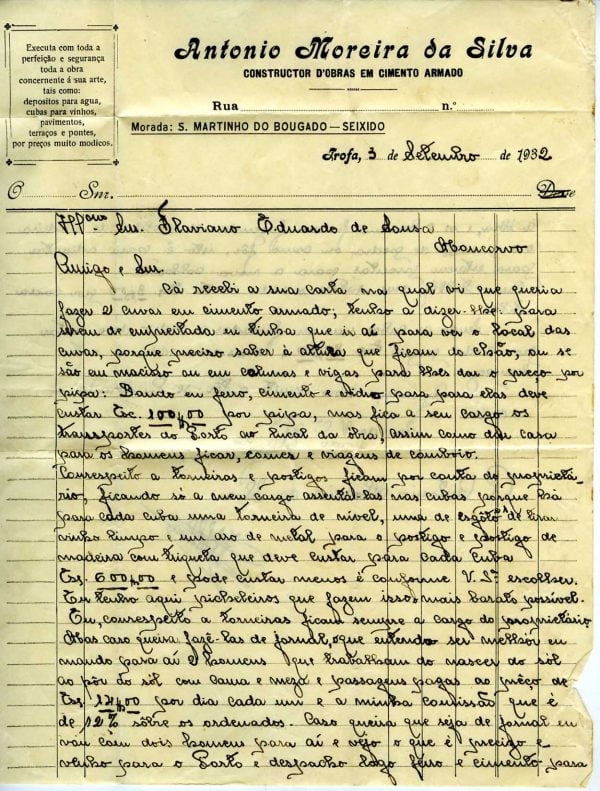 Executa com toda a
perfeição e segurança
toda a obra
concernente á sua arte,
tais como:
depositos para agua,
cubas para vinhos,
pavimentos,
terraços e pontes,
por preços muito modicos.
Antonio Moreira da Silva
CONSTRUCTOR D'OBRAS EM CIMENTO ARMADO
Rua n.º
Morada: S. MARTINHO DO BOUGADO — SEIXIDO
Trofa, 3 de Setembro de 1932
O Snr. Deve
Snr. Flaviano Eduardo de Sousa
Moncorvo
Amigo e Snr.
Cá recebi a sua carta na qual vi que queria
fazer 2 cuvas em cimento armado; tenho a dizer-lhe para
serem de empreitada eu tinha que ir aí para ver o local das
cuvas, porque preciso saber à altura que ficam do chão, ou se
são em macisso ou em colunas e vigas para lhes dar o preço por
pipa: Dando eu ferro, cimento e vidro para para elas deve
custar Esc. 100$00 por pipa, mas fica a seu cargo os
transportes do Porto ao local da obra, assim como dar casa
para os homens ficar, comes e viagens de comboio.
Conrespeito a torneiras e postigos ficam por conta do proprietá-
rio, ficando só a meu cargo assentál-las nas cubas porque há
para cada cuba uma torneira de nivel, uma de esgôto e de tirar
vinho limpo e um aro de metal para o postigo e postigo de
madeira com triqueta que deve custar para cada cuba
Esc. 600$00 e pode custar menos é conforme V. Sª. escolher.
Eu tenho aqui picheleiros que fazem isso mais barato possivel.
Eu, conrespeito a torneiras ficam sempre a cargo do proprietário
Mas caso queira fazê-las de jornal, o que entendo ser melhór eu
mando para aí 2 homens que trabalham do nascer do sól
ao pôr do sól com cama e meza e passagens pagas ao prêço de
Esc. 14$00 por dia cada um e a minha comissão que é
de 12% sôbre os ordenados. Caso queira que seja de jornal eu
vou com dois homens para aí e vejo o que é precizo e
venho para o Porto e despacho logo ferro e cimento para